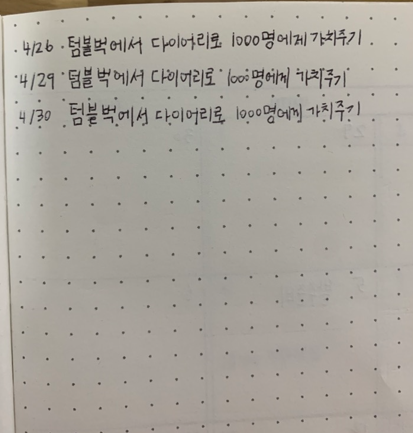 4/26 텀블벅에서 다이어리로 1000명에게 가치주기
4/29 텀블벅에서 다이어리로 1000명에게 가치주기
4/30 텀블벅에서 다이어리로 1000명에게 가치주기